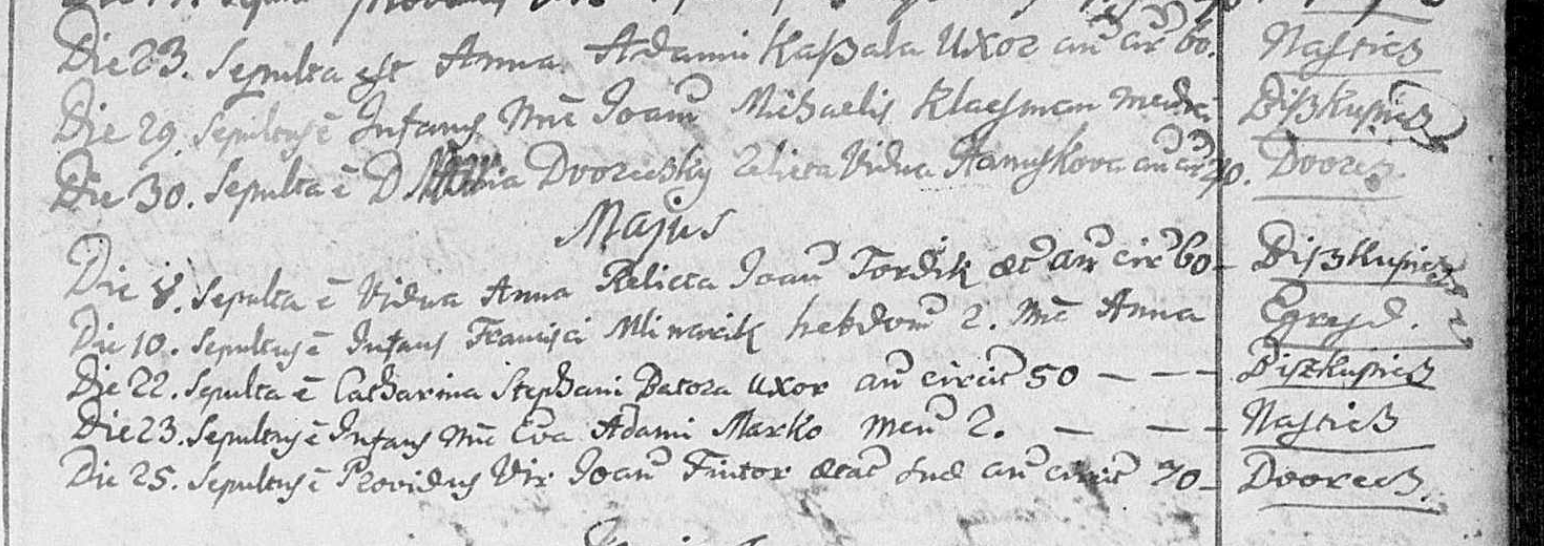 Die 23. Sepulta est Anna Adami Kaßala Uxor añ cir 60. Nasticz
Die 29. Sepultus ē Infans Nõe Joañ Michaelis Klacsman Biszkupicz
Die 30. Sepulta ē D Dvorcisky relicta Vidua Hanuskova añ cir 70. Dvorcz
Majus
Die 8. Sepulta ē Vidua Anna Relicta Joañ Tordik æt añ cir 60 Biszkupicz
Die 10. Sepultus ē Infans Francisci Mlinarcik hebdom 2. Nõe Anna Egresd.
Die 22. Sepulta ē Catharina Stephani Batora uxor añ circit 50 – – – Biszkupicz
Die 23. Sepultus ē Infans Nõe Eva Adami Marko Meñ 2. – – – Nasticz
Die 25. Sepultus ē Providus Vir Joañ Fintor ætat suæ añ circit 70 – Dvorecz.